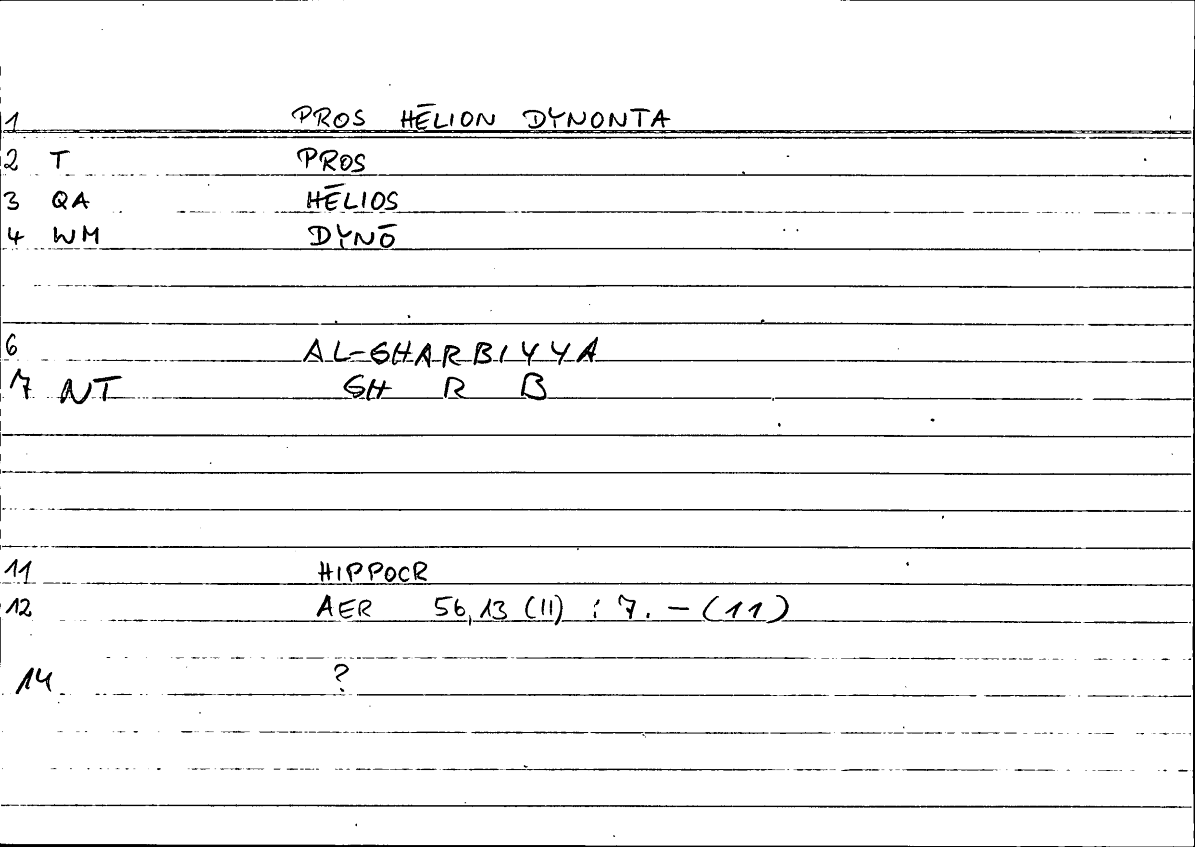 1 PROS HĒLION DYNONTA
2 T PROS
3 QA HĒLIOS
4 WM DYNŌ
6 AL-GHARBIYYA
7 NT GH R B
11 HIPPOCR
12 AER 56,13 (11) : 7. – (11)
14 ?